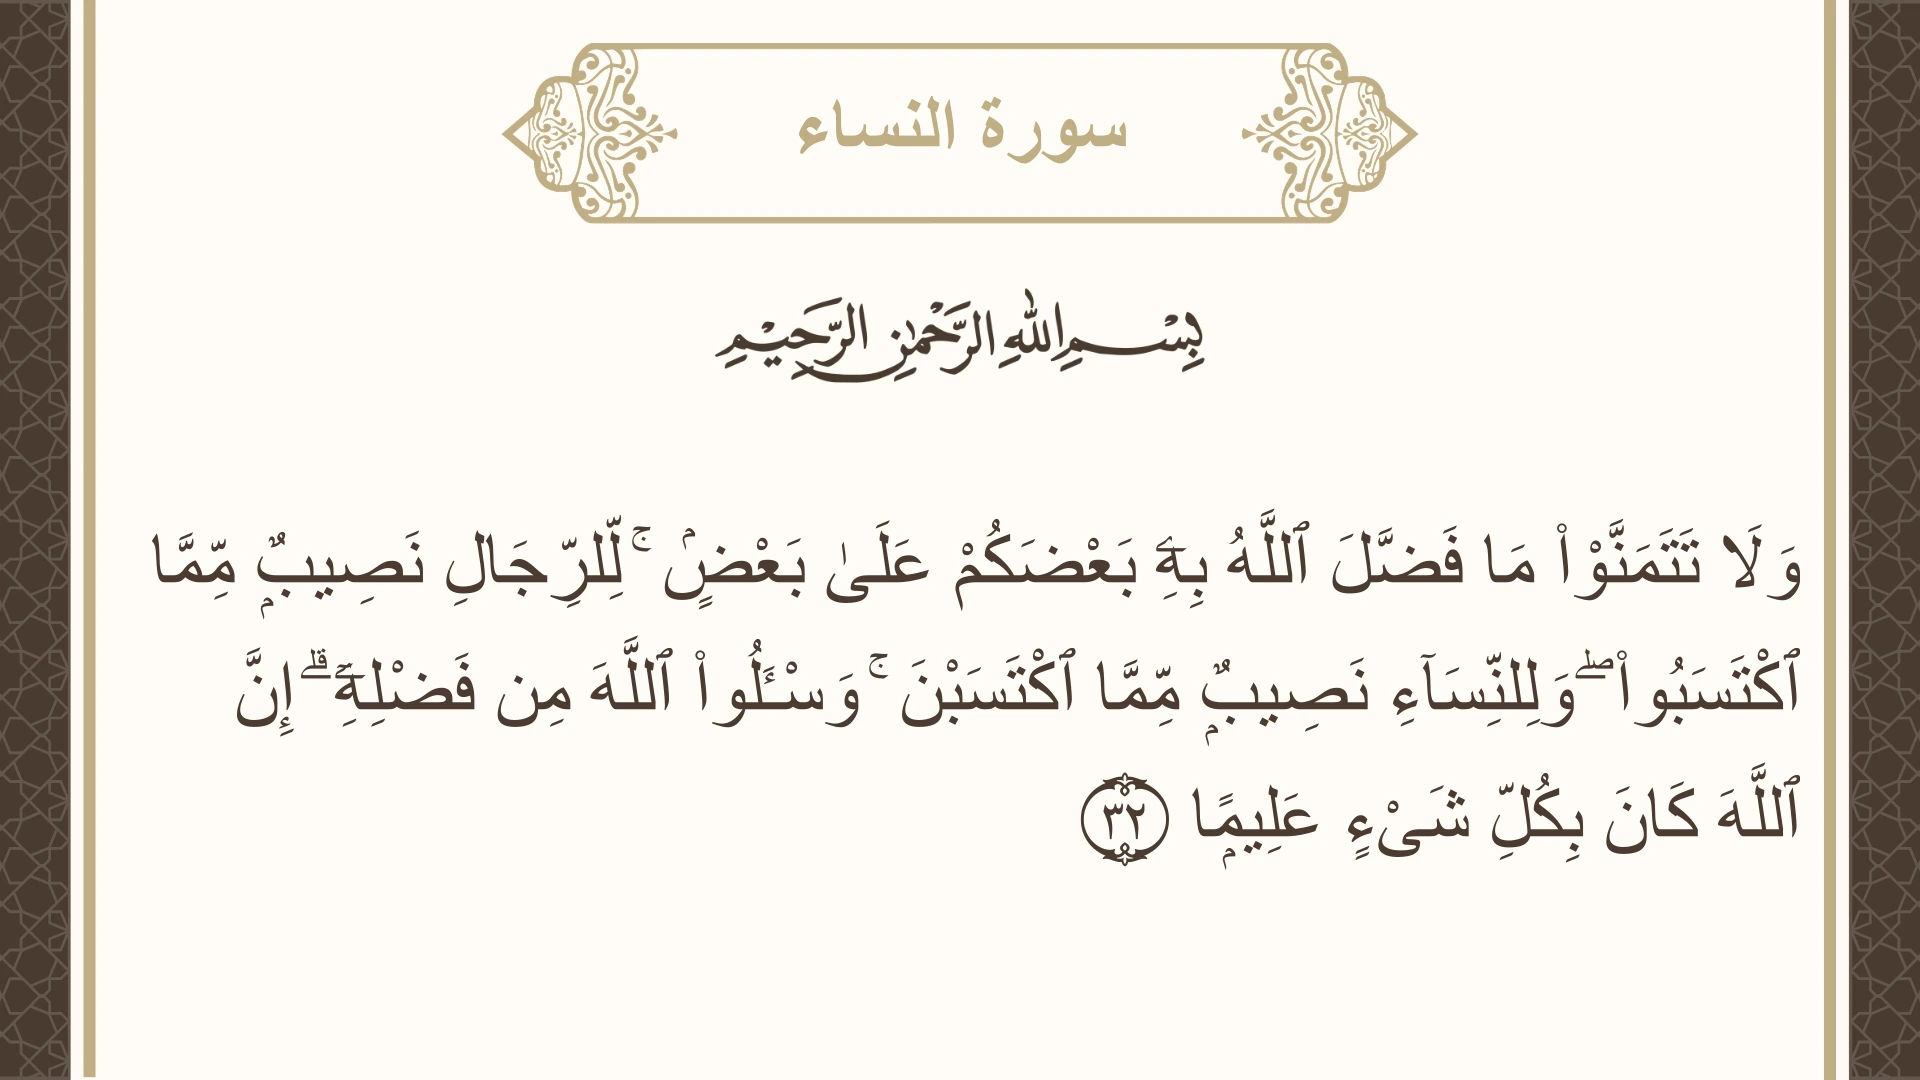 سورة النساء
بِسْمِ اللهِ الرَّحْمٰنِ الرَّحِيْمِ
وَلَا تَتَمَنَّوْا۟ مَا فَضَّلَ ٱللَّهُ بِهِۦٓ بَعْضَكُمْ عَلَىٰ بَعْضٍۢ ۚ لِّلرِّجَالِ نَصِيبٌۭ مِّمَّا
ٱكْتَسَبُوا۟ ۖ وَلِلنِّسَآءِ نَصِيبٌۭ مِّمَّا ٱكْتَسَبْنَ ۚ وَسْـَٔلُوا۟ ٱللَّهَ مِن فَضْلِهِۦٓ ۗ إِنَّ
ٱللَّهَ كَانَ بِكُلِّ شَىْءٍ عَلِيمًۭا ٣٢